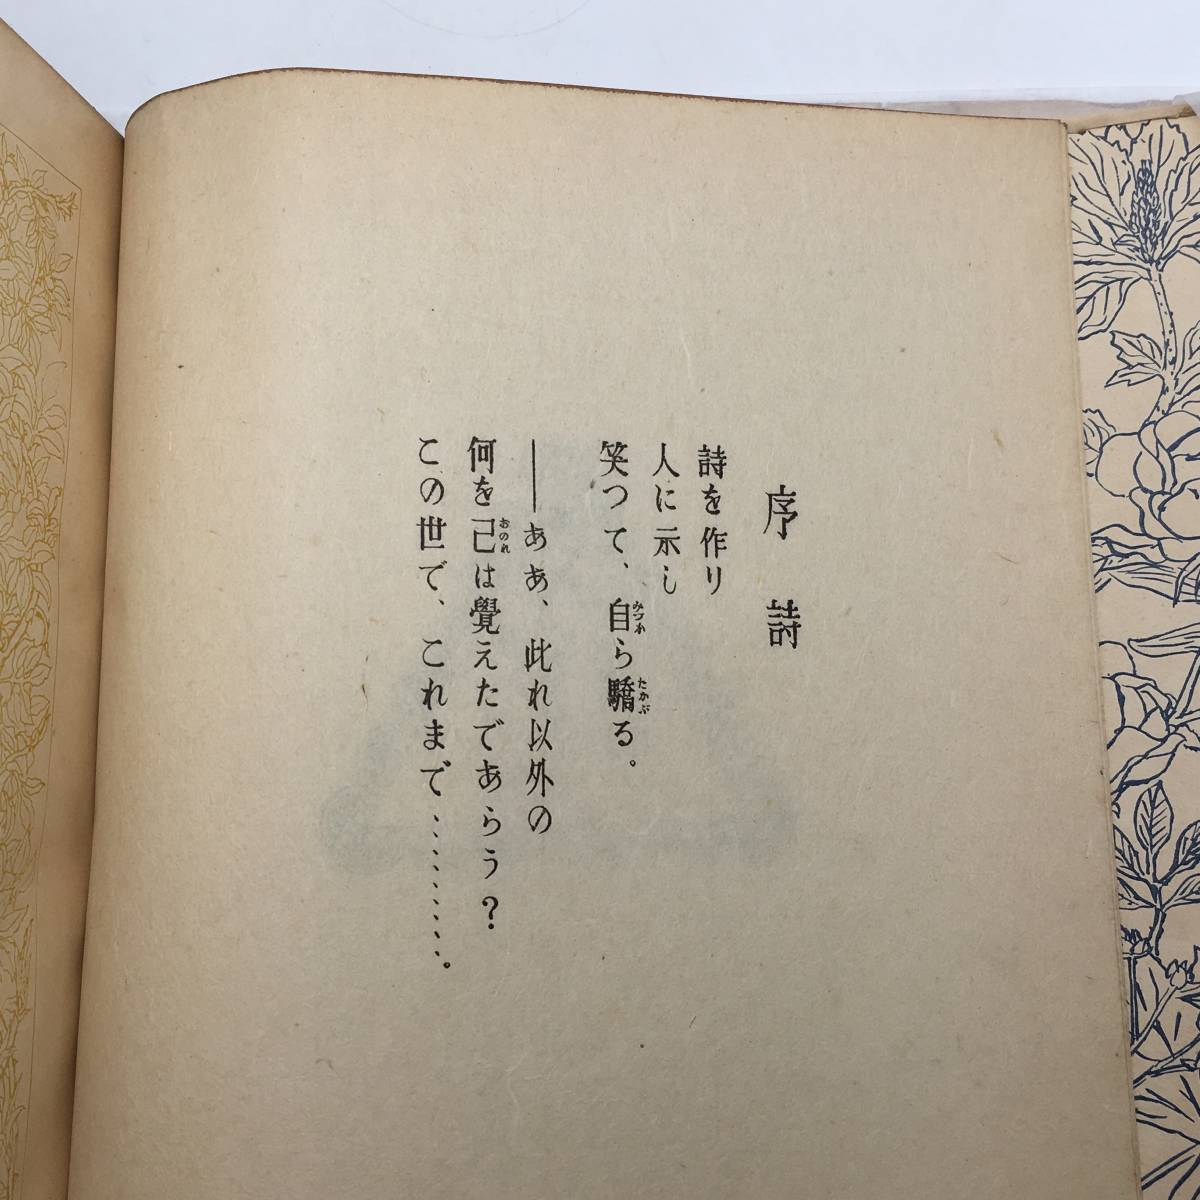 序詩
詩を作り
人に示し
笑つて、自ら驕る。
――ああ、此れ以外の
何を己は覺えたであらう?
この世で、これまで………。